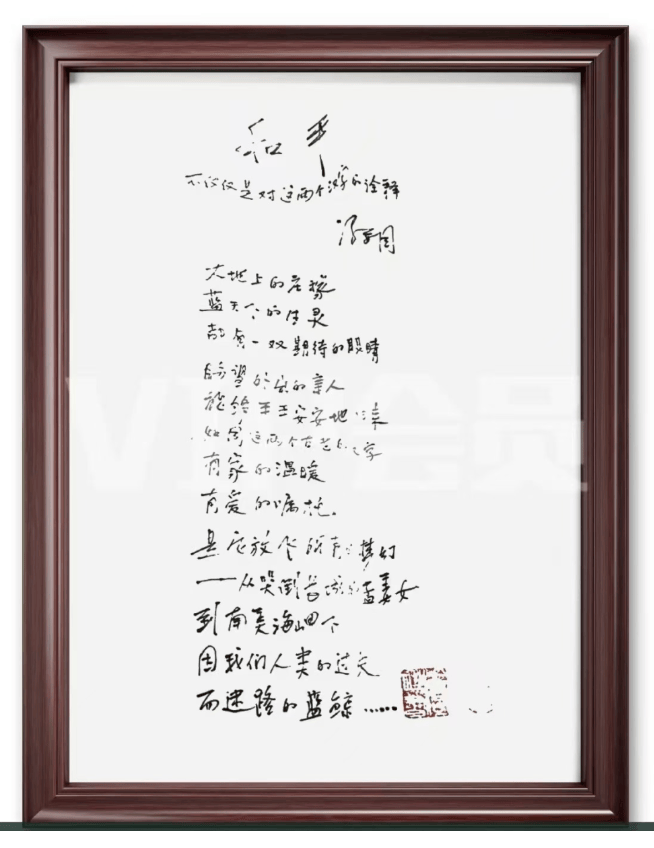 和平
不仅仅是对这两个汉字的诠释
大地上的
蓝天下的生灵
一双期待的眼睛
盼望的亲人
能够平平安安地
如同这两个古老的文字
有家的温暖
有爱的嘱托。
是在放飞所有梦幻
——从哭倒长城的孟姜女
到南美海岬下
因我们人类的过失
而迷路的蓝鲸……
VIP会员